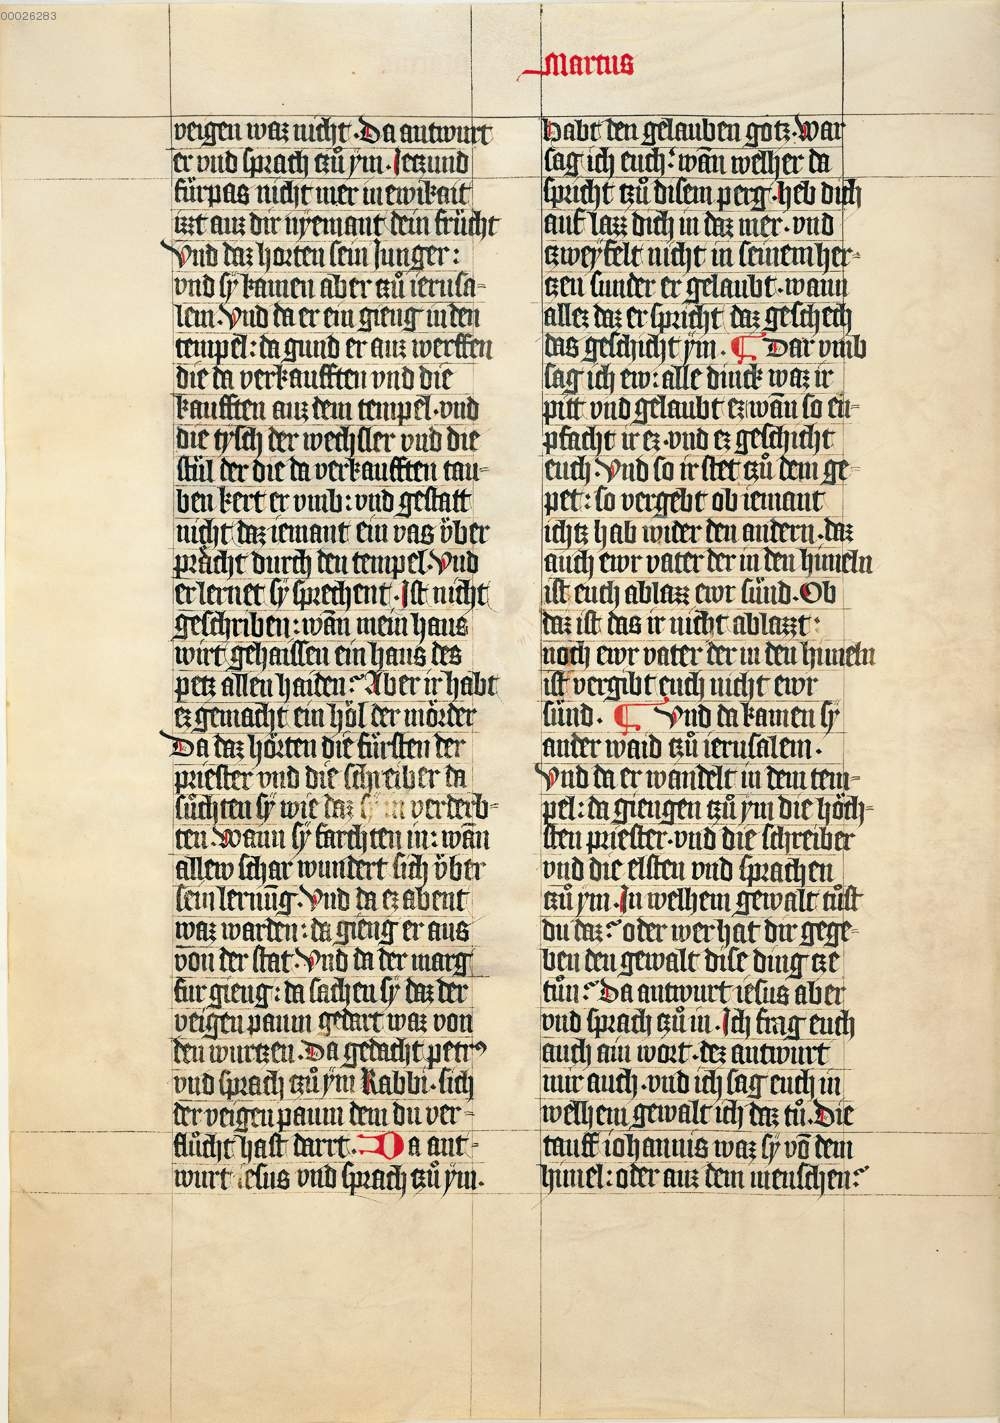 00026283
Marcus
veigen waz nicht. Da antwurt
er vnd sprach czů ym. Ieczund
fürpas nicht mer in ewikait
izzt auz dir nyemant dein frücht
Vnd daz horten sein Junger:
vnd sÿ kamen aber czů ierusa=
lem. Vnd da er ein gieng in den
tempel: da gund er auz werffen
die da verkaufften vnd die
kaufften auz dem tempel. vnd
die tysch der wechsler vnd die
stül der die da verkaufften tau=
ben kert er vmb: vnd gestatt
nicht daz iemant ein vas über
prächt durch den tempel. Vnd
er lernet sÿ sprechent. Ist nicht
geschriben: wān mein haus
wirt gehaissen ein haus des
petz allen haiden? Aber ir habt
ez gemacht ein höl der mörder
Da daz hörten die fürsten der
priester vnd die schreiber da
sůchten sÿ wie daz sÿ in verderb=
ten. Wann sÿ farchten in: wān
allew schar wundert sich über
sein lernūg. Vnd da ez abent
waz warden: da gieng er aus
von der stat. Vnd da der marg
fur gieng: da sachen sÿ daz der
veigen paum gedart waz von
den wurtzen. Da gedacht petrꝰ
vnd sprach czů ym Rabbi. sich
der veigen paum dem du ver=
flůcht hast darrt. Da ant=
wurt iesus vnd sprach czů ym.
habt den gelauben gotz. War
sag ich euch: wān welher da
spricht czů disem perg. heb dich
auf lazz dich in daz mer. vnd
zweyfelt nicht in seinem her=
czen sunder er gelaubt. wann
allez daz er spricht daz geschech
das geschicht ym. ¶ Dar vmb
sag ich ew: alle dinck waz ir
pitt vnd gelaubt ez wān so en=
pfacht ir ez. vnd ez geschicht
euch. Vnd so ir stet czů dem ge=
pet: so vergebt ob iemant
ichtz hab wider den andern. daz
auch ewr vater der in den himeln
ist euch ablazz ewr sünd. Ob
daz ist das ir nicht ablazzt:
noch ewr vater der in den himeln
ist vergibt euch nicht ewr
sünd. ¶ Vnd da kamen sÿ
ander waid czů ierusalem.
Vnd da er wandelt in dem tem=
pel: da giengen czů ym die höch=
sten priester. vnd die schreiber
vnd die elsten vnd sprachen
czů ym. In welhem gewalt tůst
du daz? oder wer hat dir gege=
ben den gewalt dise ding cze
tůn? Da antwurt iesus aber
vnd sprach czů in. Ich frag euch
auch ain wort. dez antwurt
mir auch. vnd ich sag euch in
welhem gewalt ich daz tů. Die
tauff iohannis waz sÿ vō dem
himel: oder auz dem menschen?